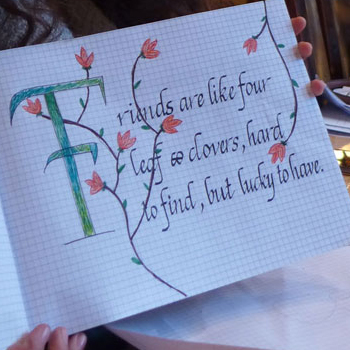 Friends are like four
leaf clovers, hard
to find, but lucky to have.